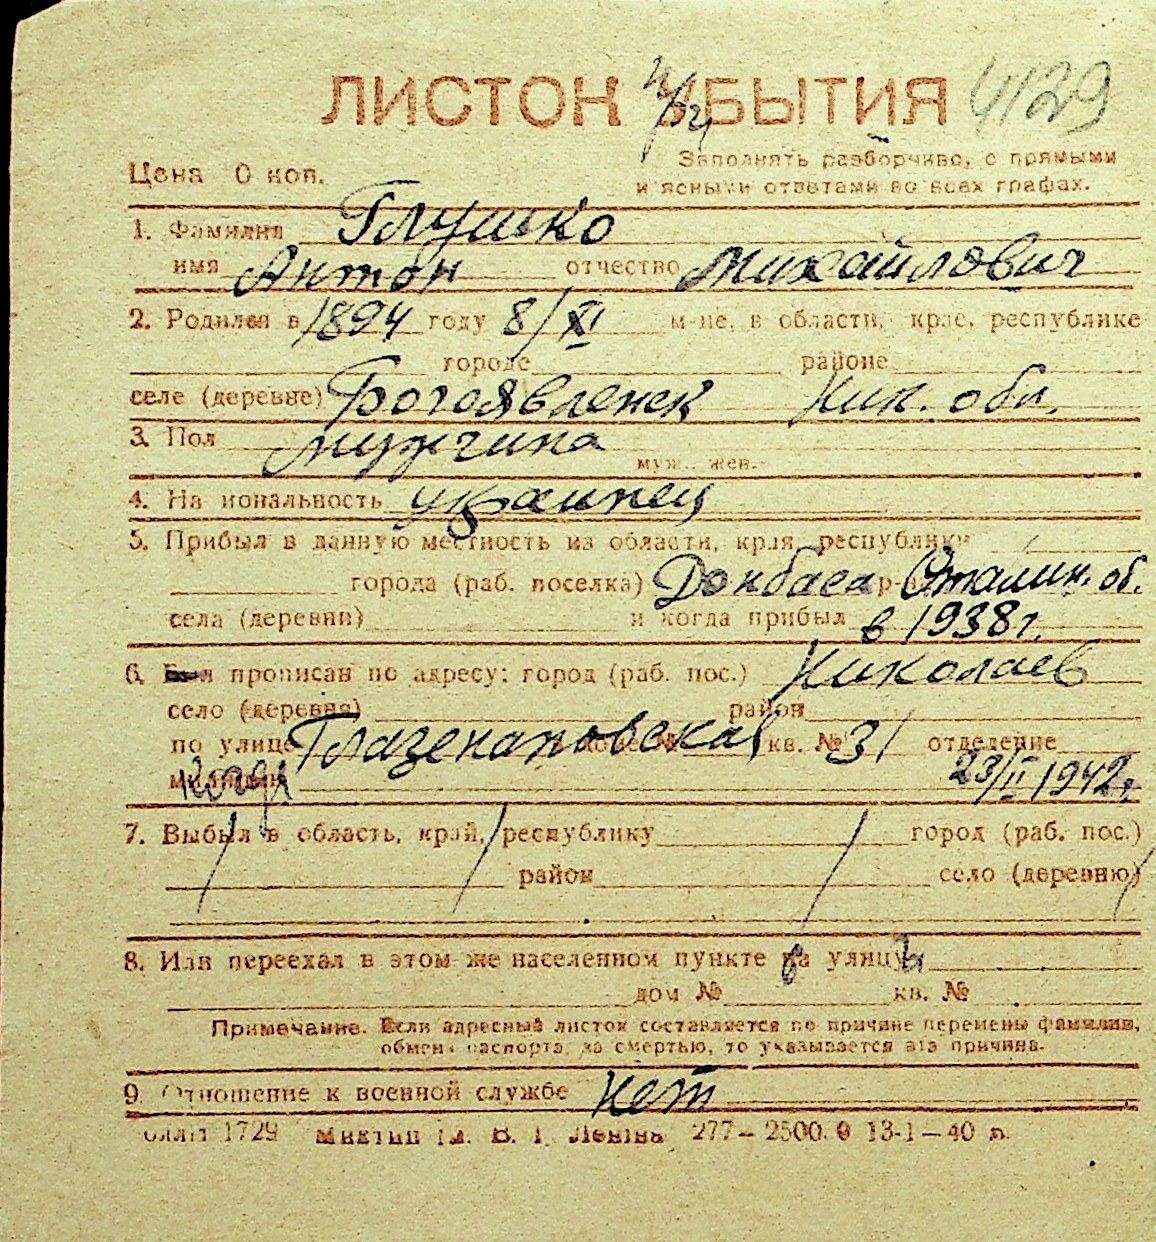 ЛИСТОК УБЫТИЯ 4129
Заполнять разборчиво, с прямыми
Цена 0 коп.
и ясными ответами во всех графах.
1. Фамилия Глушко
имя Антон отчество Михайлович
2. Родился в 1894 году 8/XI м-не, в области, крае, республике
городе районе
селе (деревне) Богоявленск Ник. обл.
3. Пол мужчина
муж., жен.
4. Национальность украинец
5. Прибыл в данную местность из области, края, республики
города (раб. поселка) Донбаса р- Сталин. об.
села (деревни) и когда прибыл в 1938 г.
6. Был прописан по адресу: город (раб. пос.) Николаев
село (деревня) район
по улице Глазенаповская кв. № 31 отделение
милиции Когда 23/II 1942 г.
7. Выбыл в область, край, республику город (раб. пос.)
район село (деревню)
8. Или переехал в этом же населенном пункте на улицу
дом № кв. №
Примечание. Если адресный листок составляется по причине перемены фамилии,
обмена паспорта, за смертью, то указывается эта причина.
9. Отношение к военной службе нет
1729 В. І. Леніна 277—2500.0 13-1—40 р.